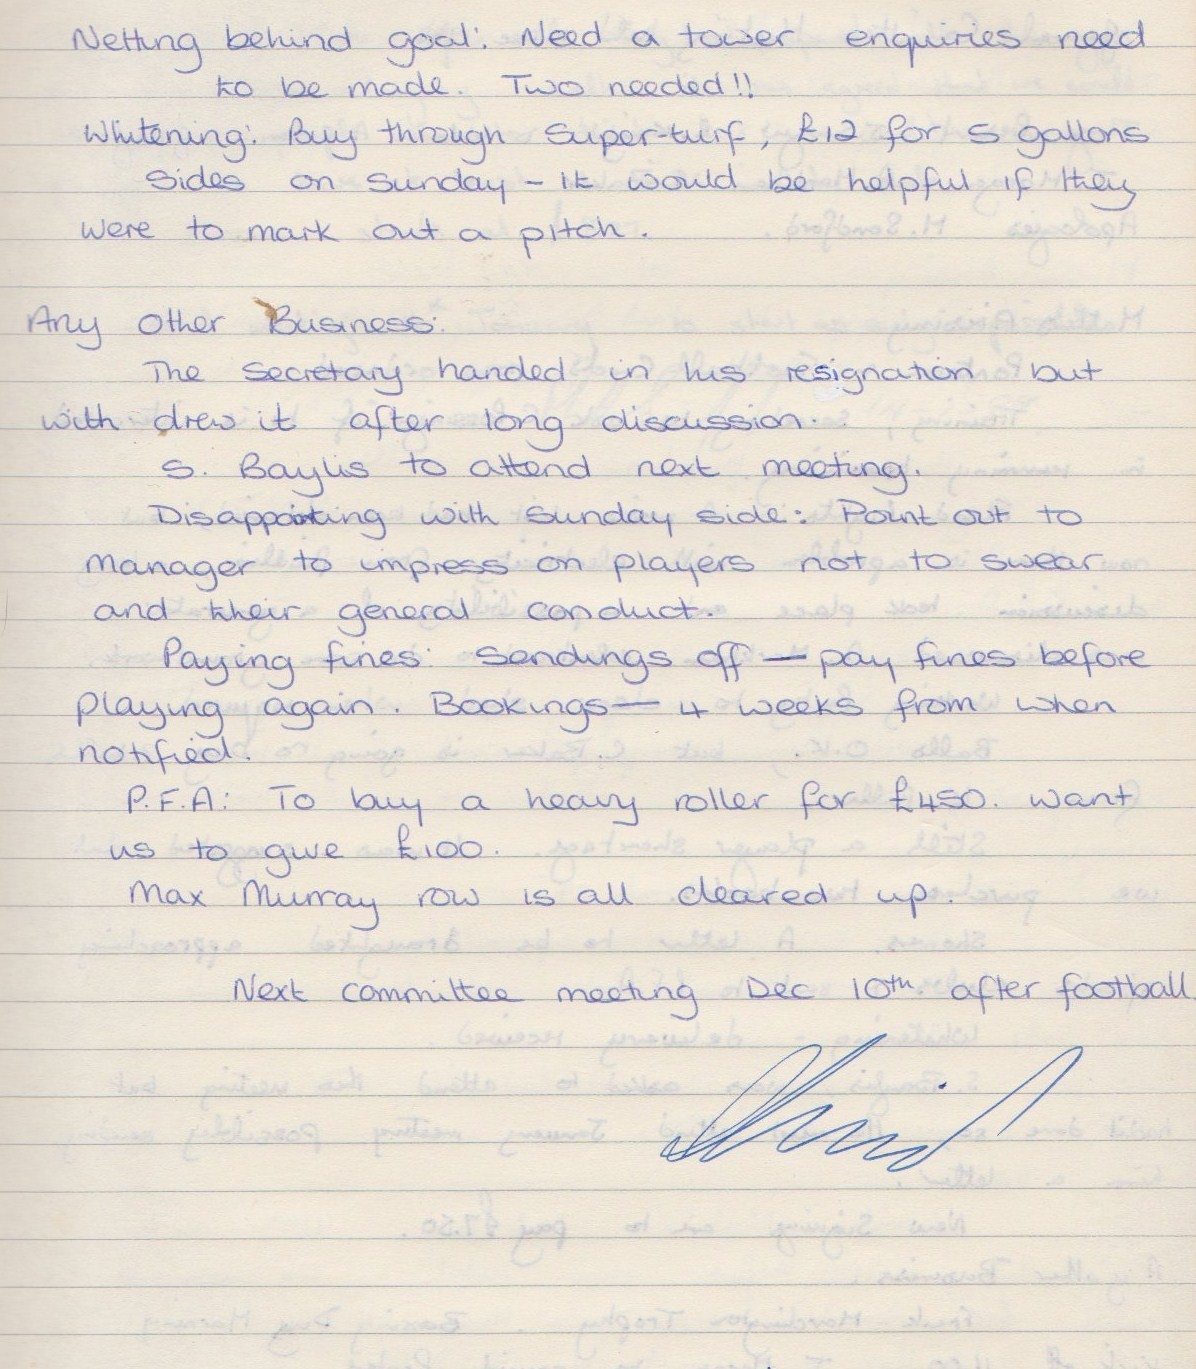 Netting behind goal: Need a tower enquiries need
to be made. Two needed!!
Whitening: Buy through Super-turf, £12 for 5 gallons
Sides on Sunday - It would be helpful if they
were to mark out a pitch.
Any Other Business:
The Secretary handed in his resignation but
with drew it after long discussion.
S. Baylis to attend next meeting.
Disappointing with Sunday side: Point out to
Manager to impress on players not to swear
and their general conduct.
Paying fines: Sendings off — pay fines before
playing again. Bookings — 4 weeks from when
notified.
P.F.A: To buy a heavy roller for £450. Want
us to give £100.
Max Murray row is all cleared up.
Next committee meeting Dec 10th after football.